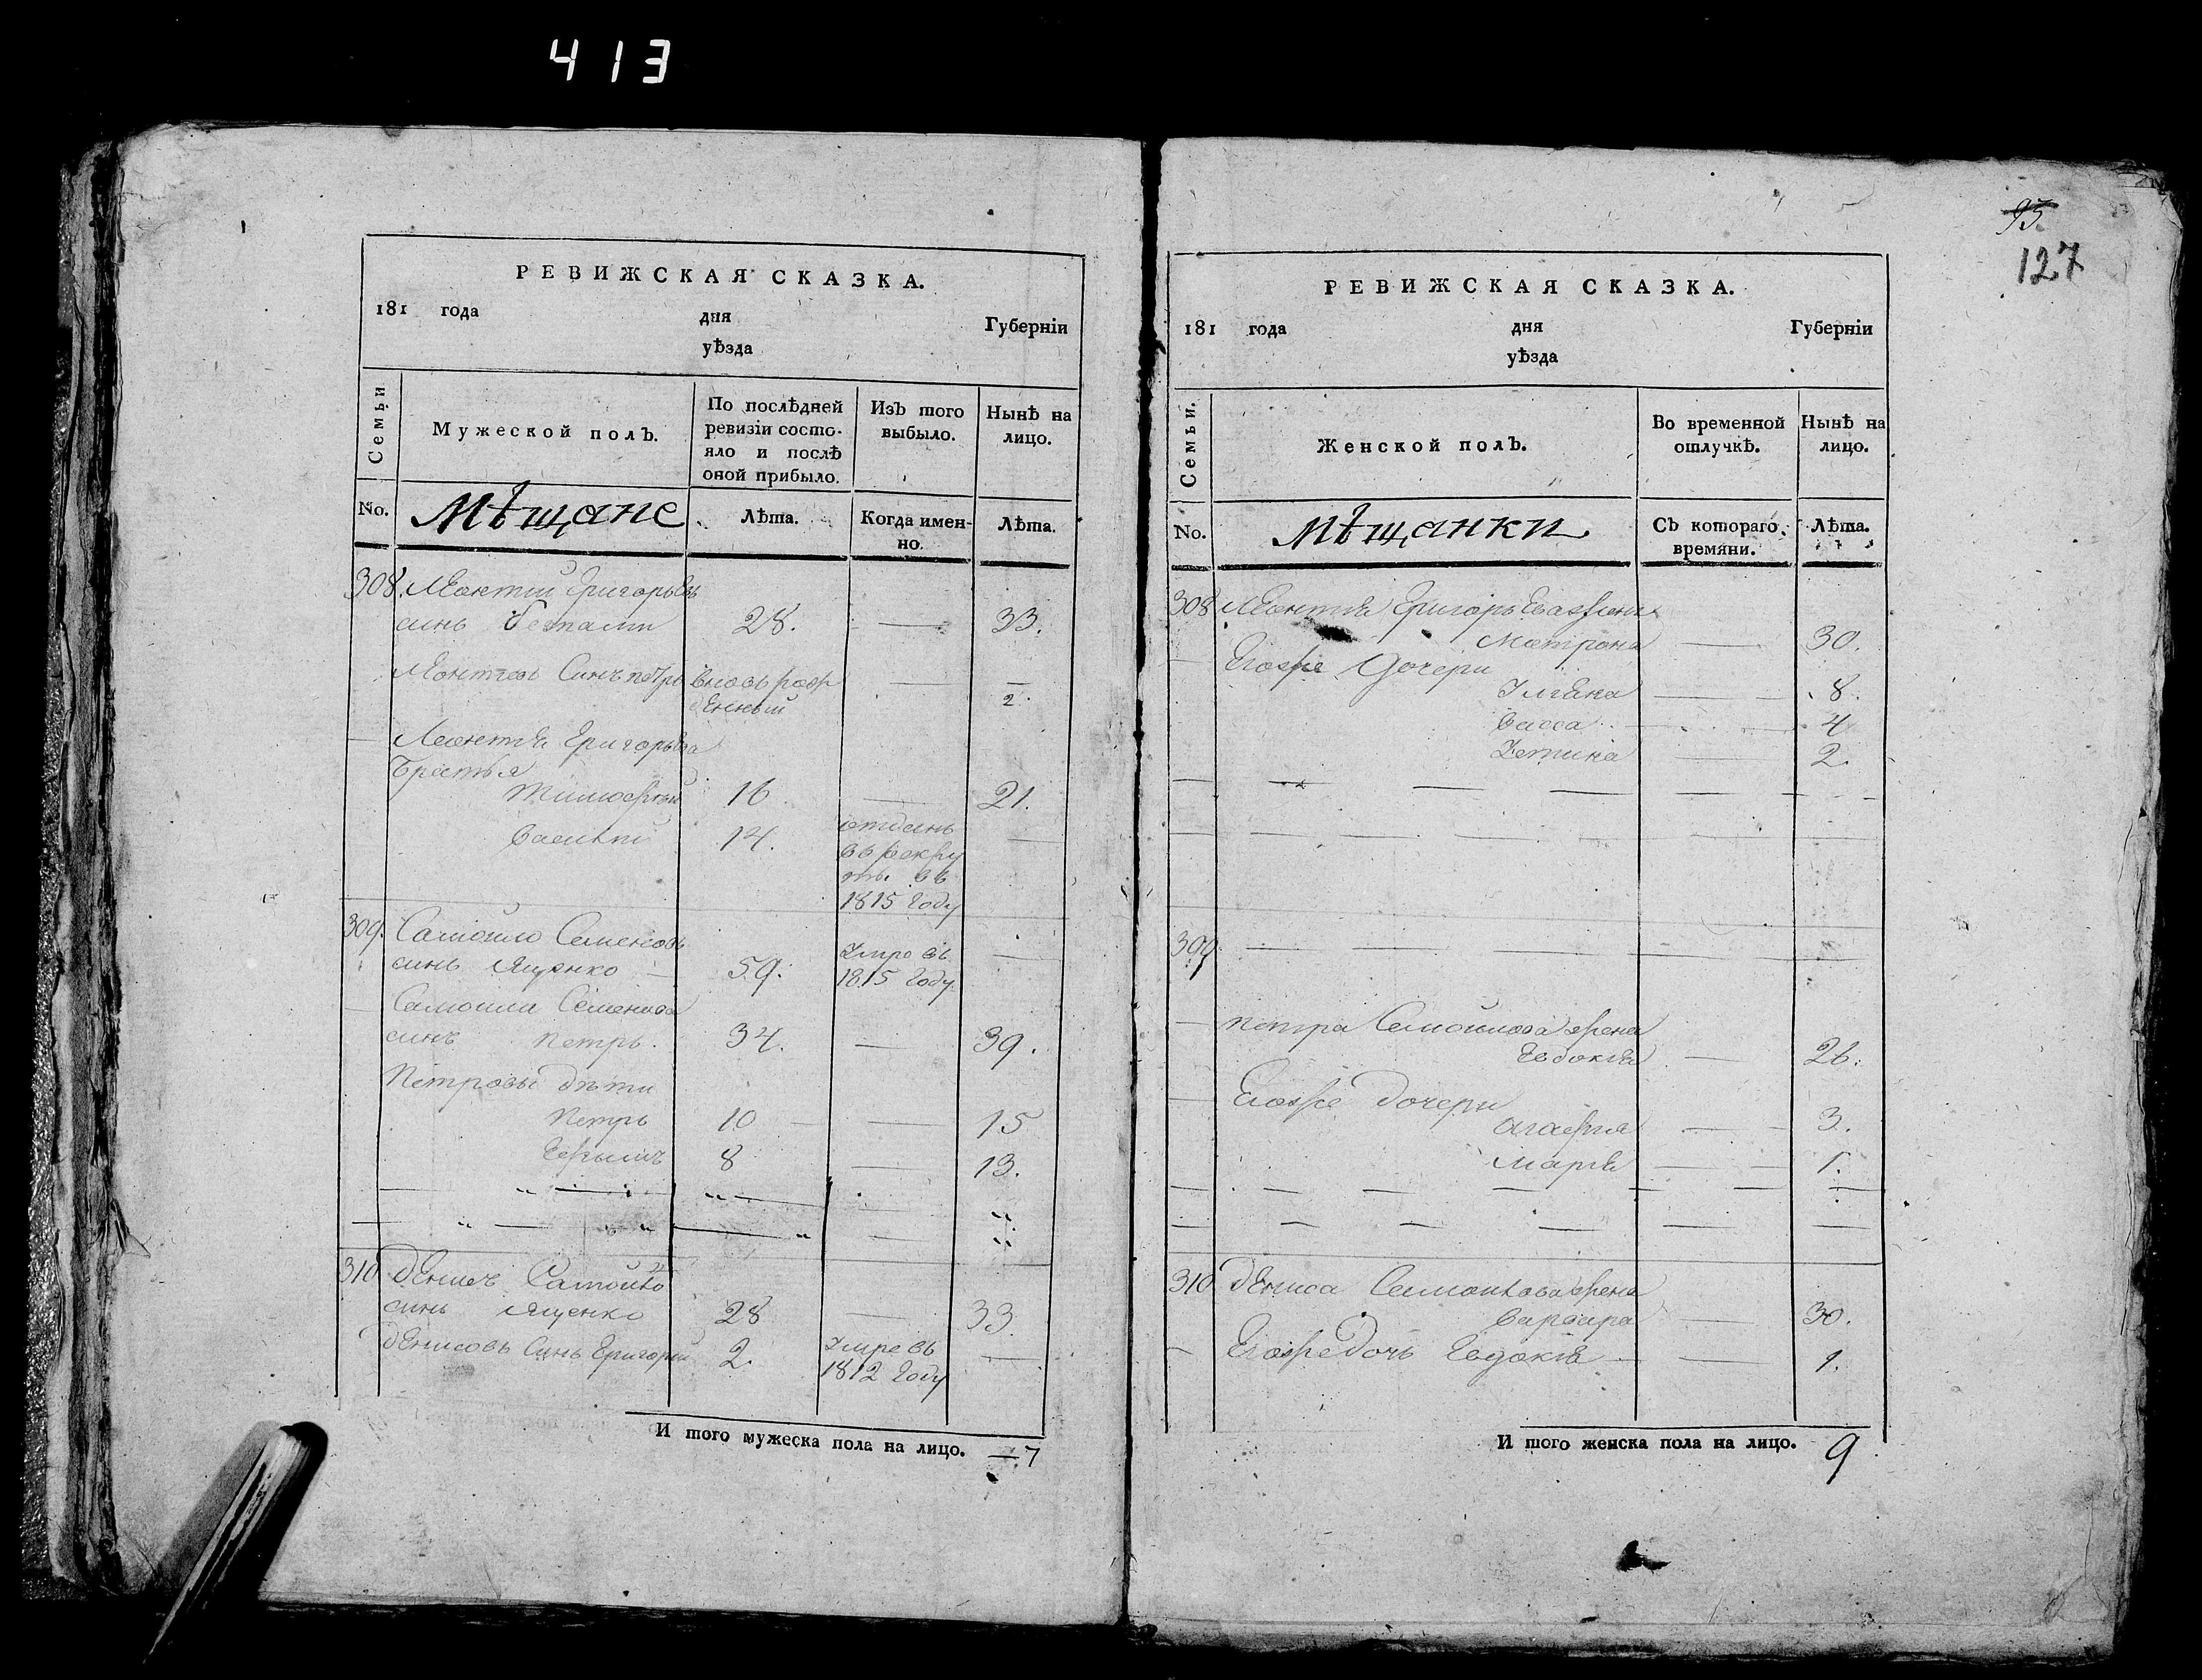 413
95.
127
РЕВИЖСКАЯ СКАЗКА.
181 года дня Губерніи
уѣзда
Семьи
Мужеской полъ.
По послѣдней ревизіи состо-
яло и послѣ оной прибыло.
Изъ того выбыло.
Нынѣ на лицо.
No. Мѣщане Лѣта. Когда имен-
но. Лѣта.
308. Леонтий Григорьевъ
синъ 28. — 33.
Леонтиевъ Синъ петръ вновь рож
денный — 2.
— Леонтия Григорьева
Братья
Тимофей 16 — 21.
Василий 14. отданъ
въ рекру
ты въ
1815 Году —
309. Самойло Семеновъ
синъ Ященко — 59. Умре въ
1815 Году —
— Самойла Семенова
синъ Петръ. 34. — 39.
Петровы дѣти
Петръ 10 — 15
Ефимъ 8 — 13.
310 Денисъ Самойло
синъ Ященко 28 — 33.
Денисовъ Синъ Григорий 2. Умре въ
1812 Году —
И того мужеска пола на лицо. — 7
РЕВИЖСКАЯ СКАЗКА.
181 года дня Губерніи
уѣзда
Семьи.
Женской полъ.
Во временной отлучкѣ.
Нынѣ на лицо.
No. Мѣщанки Съ котораго
времяни. Лѣта.
308 Леонтия Григорьева жена
Матрона — 30.
— Егоже Дочери
Улияна — 8.
Васса — 4
2.
309
— Петра Самойлова жена
Евдокия — 26.
— Егоже Дочери
Агафия — 3.
Мария — 1.
310 Дениса Самойлова жена
Варвара — 30.
— Егоже Дочь Евдокия — 1.
И того женска пола на лицо. 9